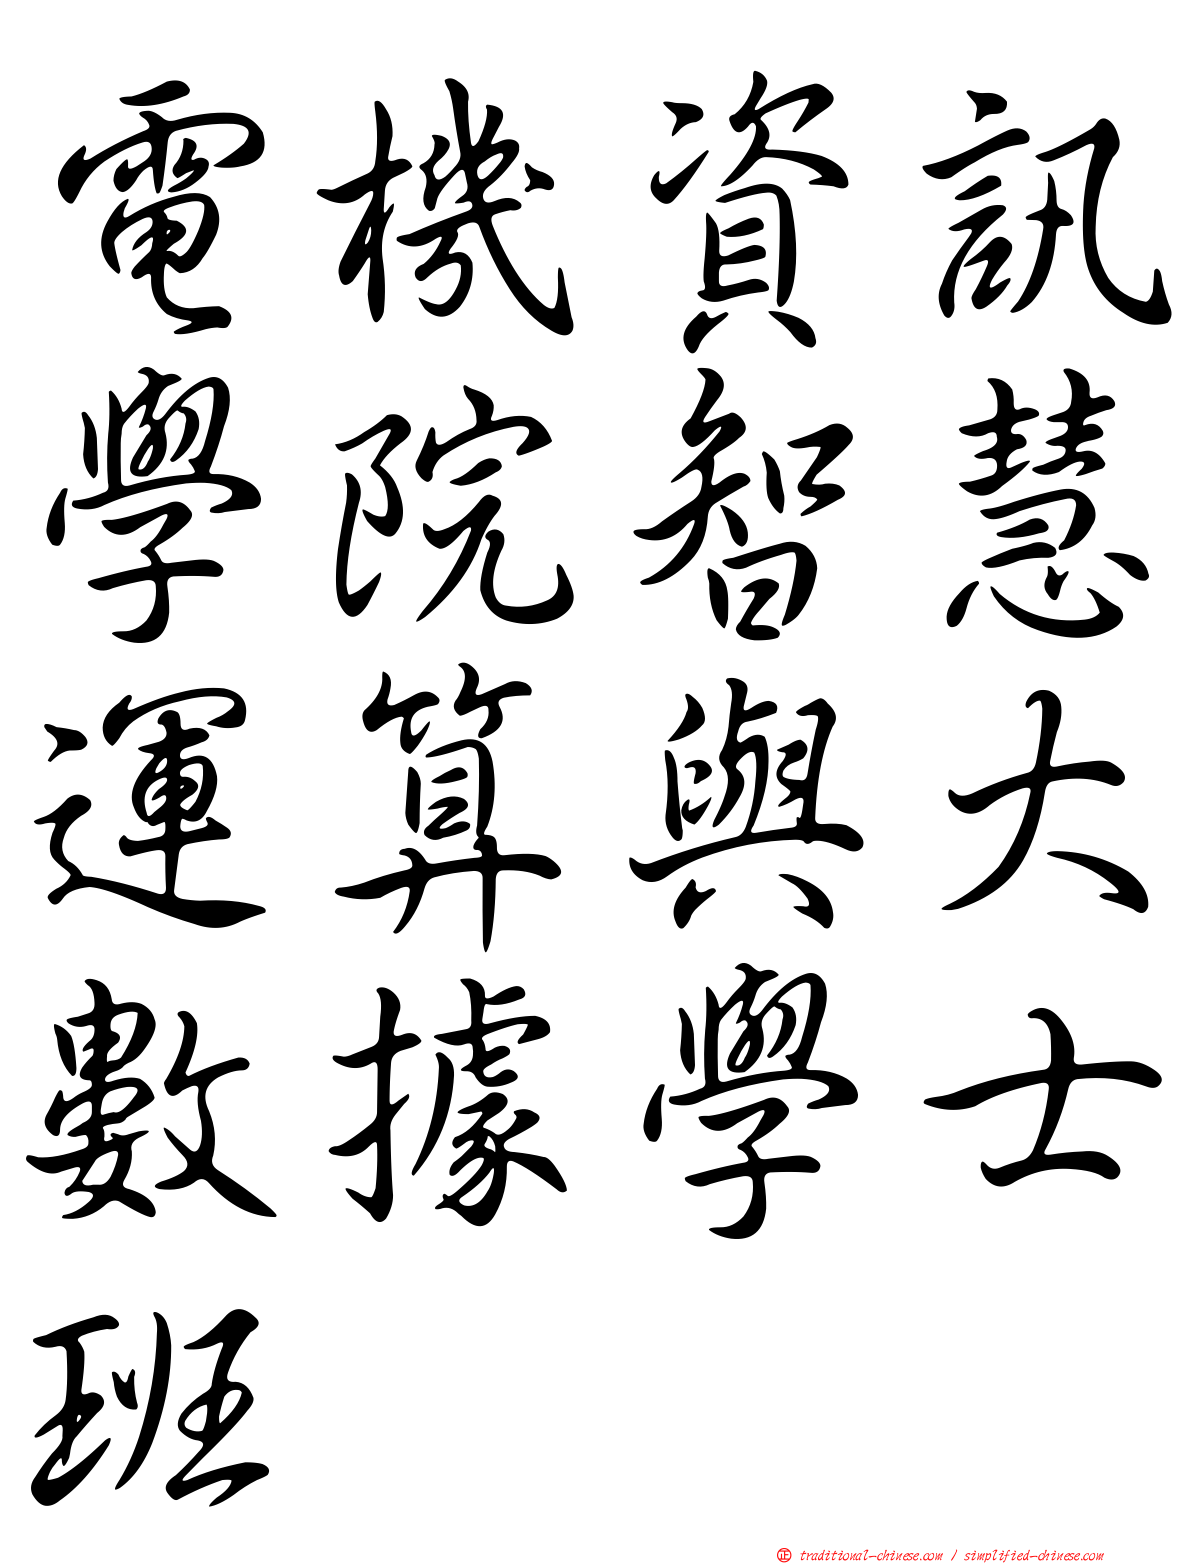 電機資訊
學院智慧
運算與大
數據學士
班
㊣ traditional-chinese.com / simplified-chinese.com